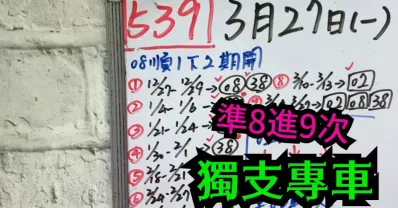 539 3月27日(一)
08順1下2期開
① 12/27- 12/29→08 38 ⑧ 3/10- 3/13→02
② 1/4- 1/6→
02 08 38
③ 1/21- 1/24→
準8進9次
④ 1/30- 2/1→38
獨支專車
⑤ 2/18- 2/21
⑥ 2/24- 2/27